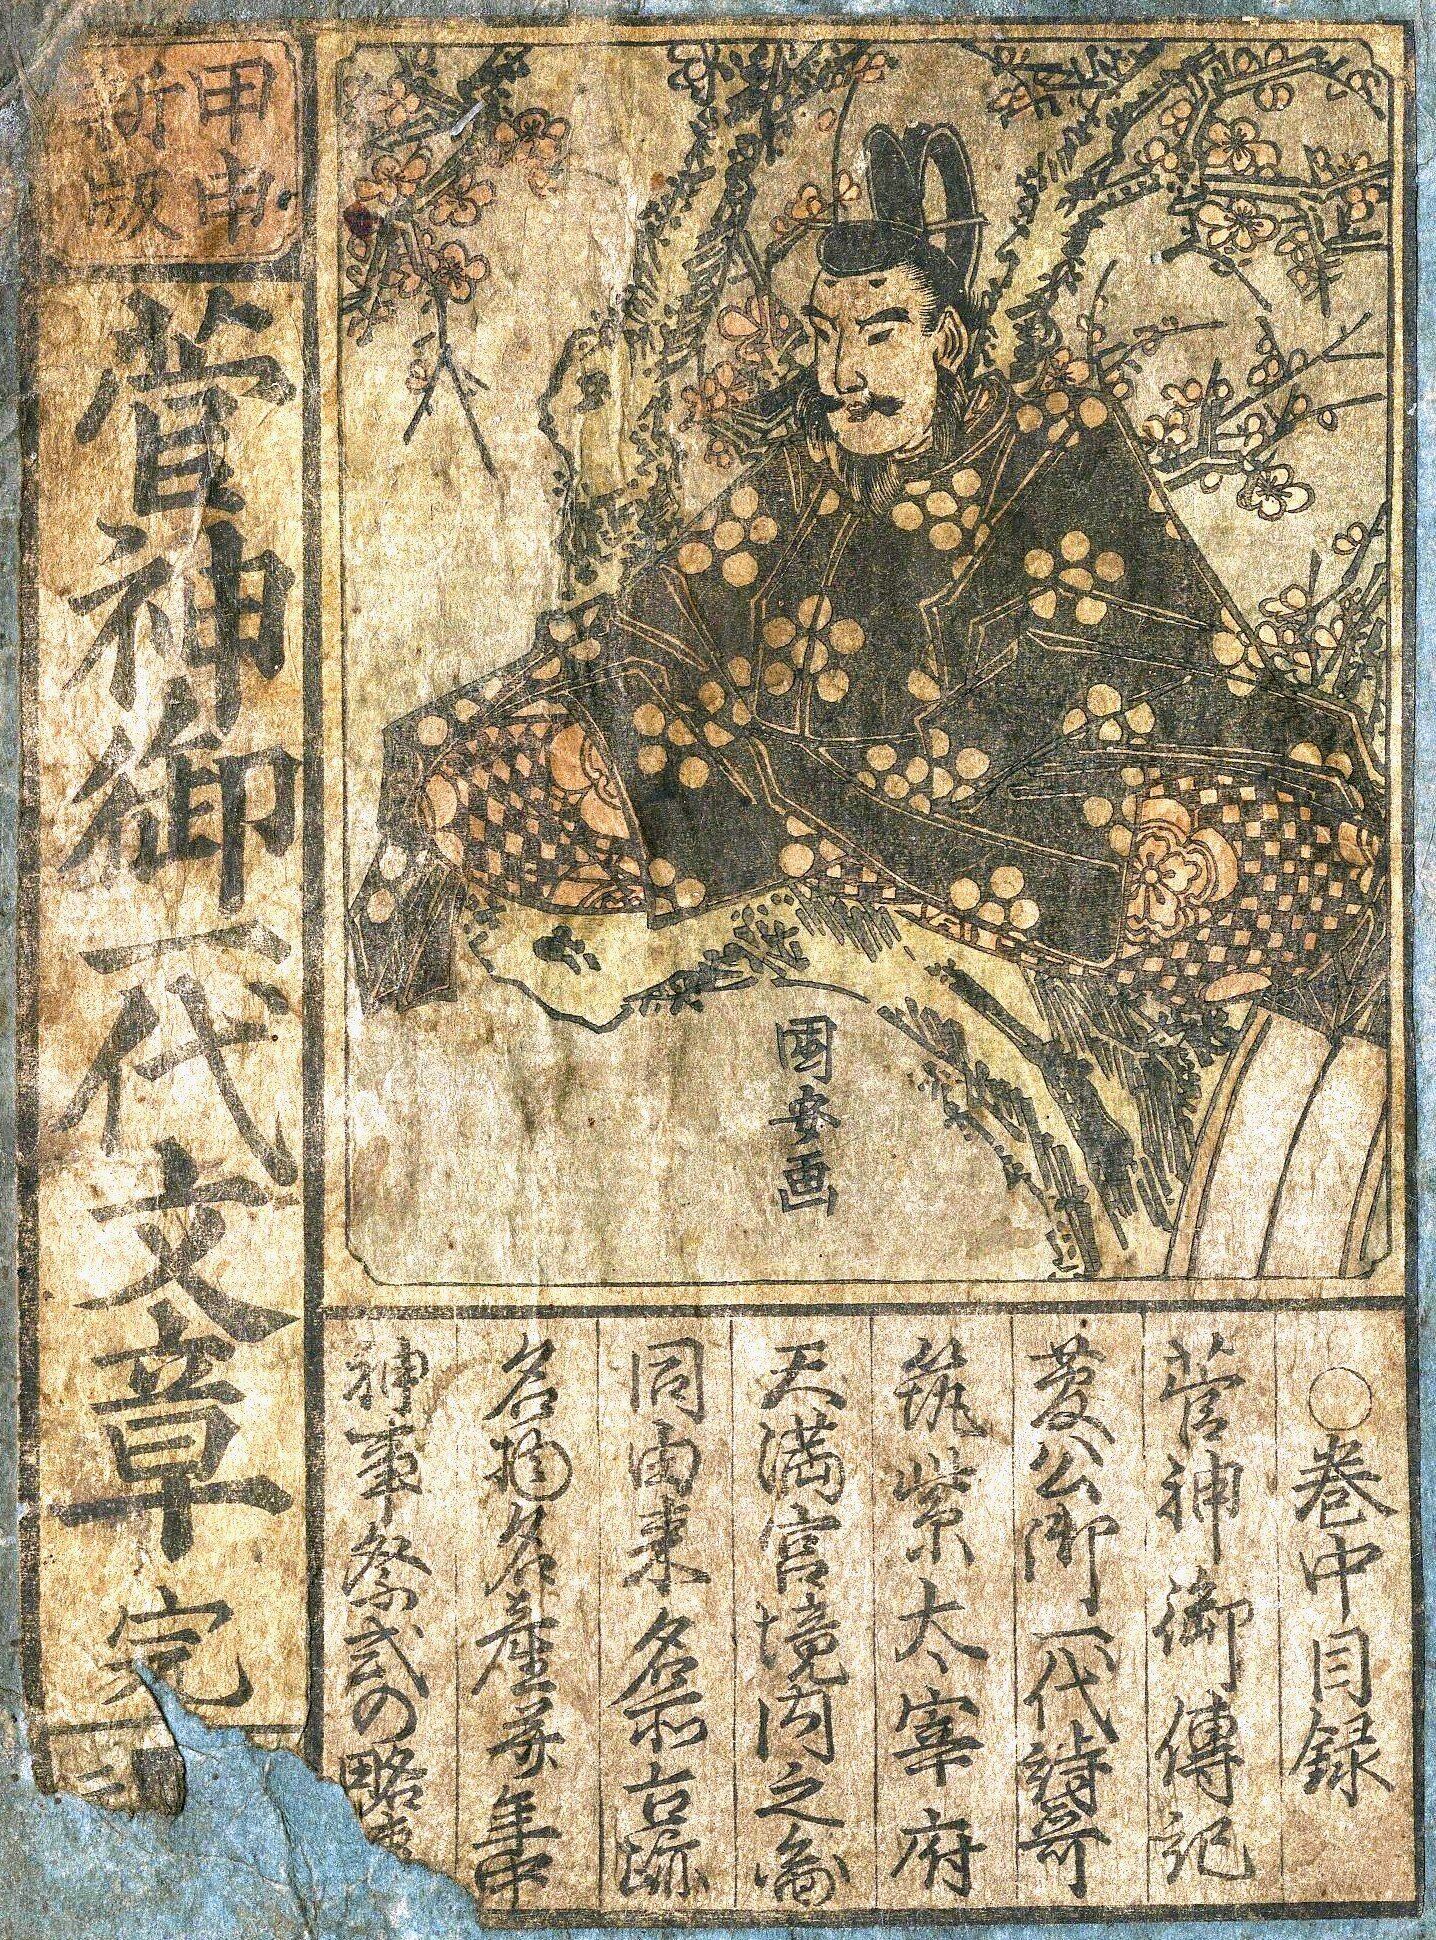 甲申
新版
菅神御一代文章 完
国安画
○巻中目録
菅神御傳記
菅公御一代詩哥
筑紫太宰府
天満宮境内之圖
同由来名所古跡
名物名産并年中
神事祭式の略